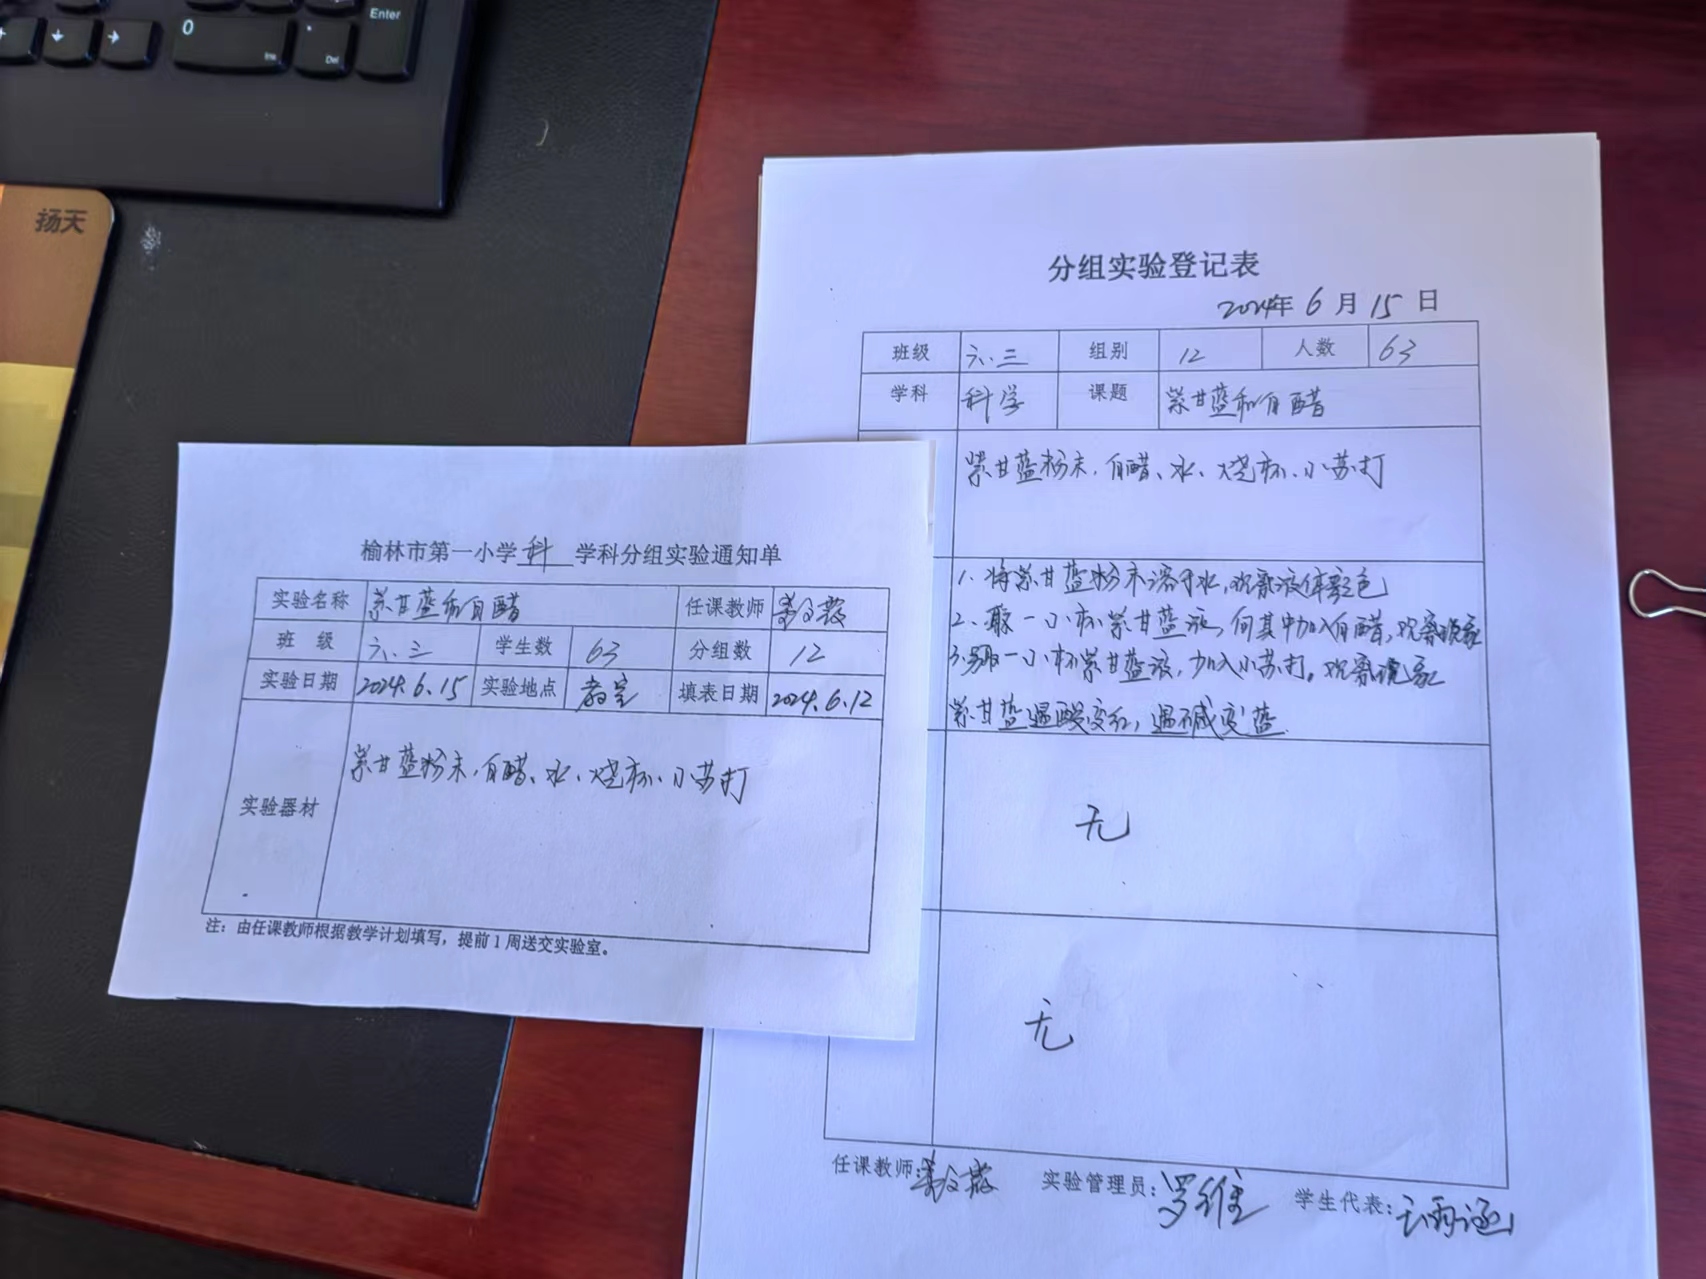 Enter
0
Ins
Del
扬天
分组实验登记表
2024年 6 月 15 日
班级 六.三 组别 12 人数 63
学科 科学 课题 紫甘蓝和白醋
紫甘蓝粉末、白醋、水、烧杯、小苏打
1. 将紫甘蓝粉末溶于水,观察液体颜色
2. 取一小杯紫甘蓝液,向其中加入白醋,观察现象
3. 另取一小杯紫甘蓝液,加入小苏打。观察现象
紫甘蓝遇酸变红,遇碱变蓝.
无
无
任课教师:
实验管理员:罗维
学生代表:
榆林市第一小学 科 学科分组实验通知单
实验名称 紫甘蓝和白醋 任课教师
班 级 六.三 学生数 63 分组数 12
实验日期 2024.6.15 实验地点 教室 填表日期 2024.6.12
实验器材 紫甘蓝粉末、白醋、水、烧杯、小苏打
注:由任课教师根据教学计划填写,提前1周送交实验室。